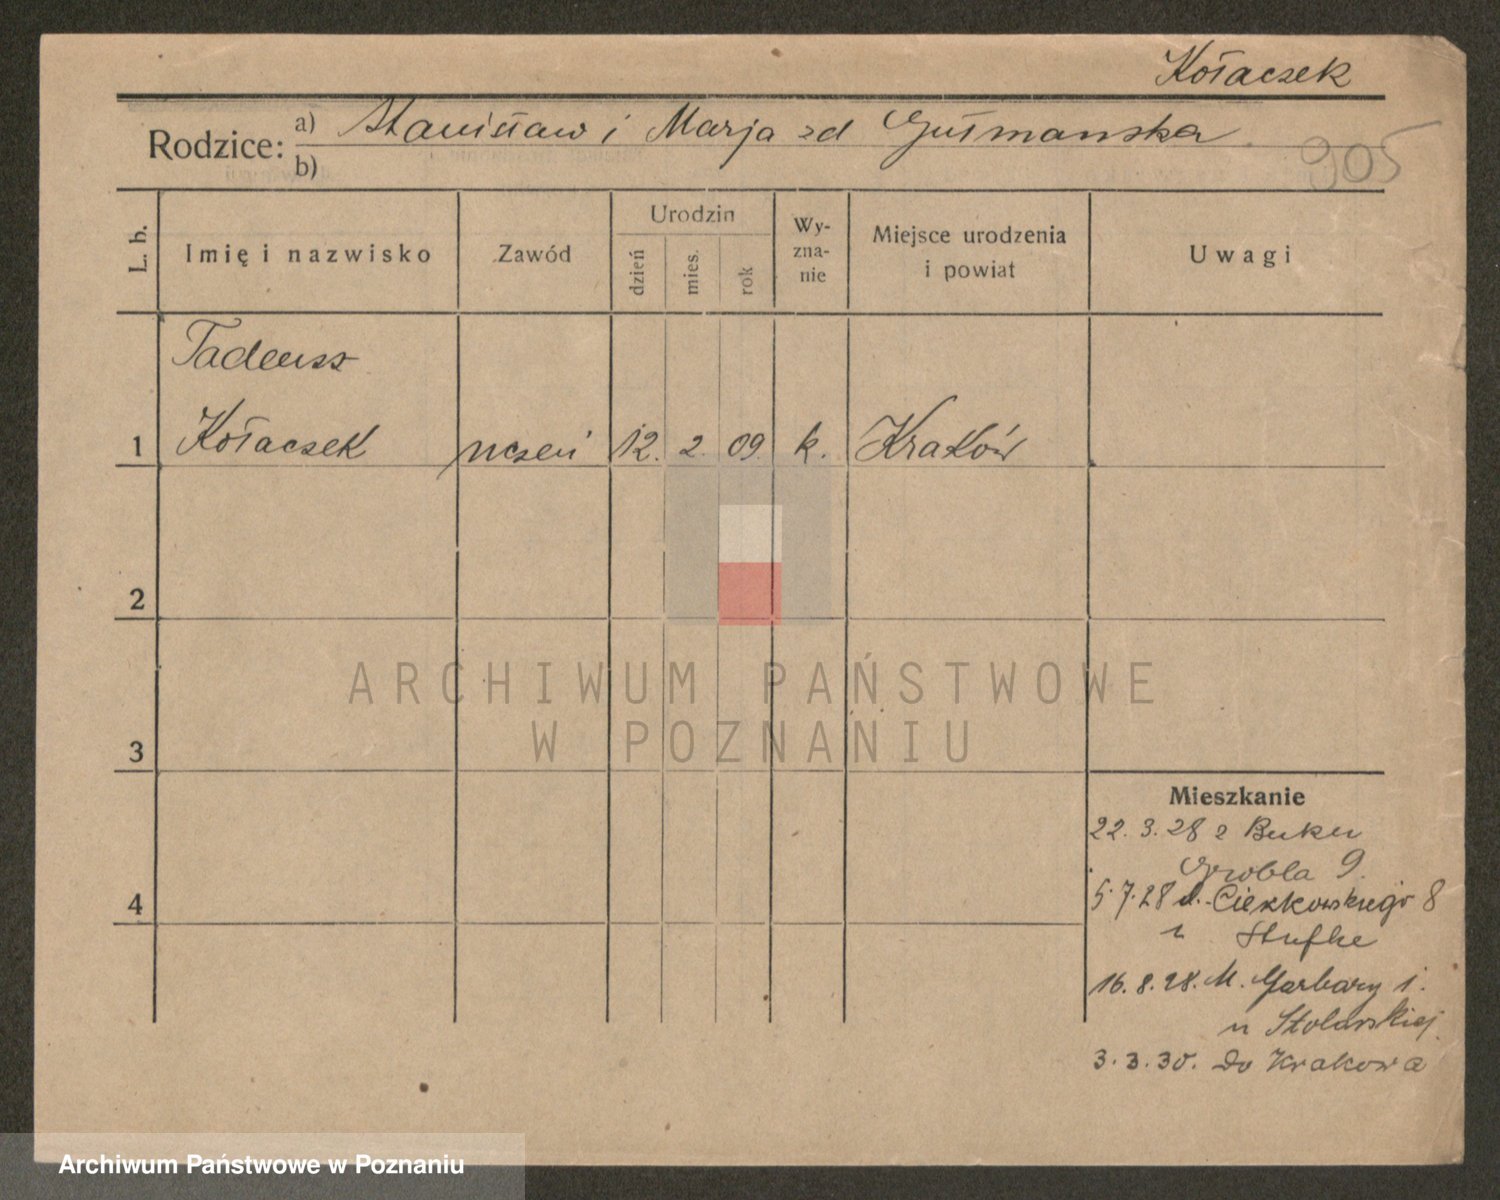 Kołaczek
Rodzice: a) Stanisław i Marja zd Gutmanska
b)
905
L. b.
Imię i nazwisko
Zawód
Urodzin
dzień
mies.
rok
Wy-
zna-
nie
Miejsce urodzenia
i powiat
Uwagi
Tadeusz
1 Kołaczek uczeń 12. 2. 09. k. Kraków
2
3
4
ARCHIWUM PAŃSTWOWE
W POZNANIU
Mieszkanie
22. 3. 28 z Buku
Grobla 9.
5.7.28 Cieszkowskiego 8
u Stufke
16. 8. 28. M. Garbary 1.
u Stolarskiej
3. 3. 30. do Krakowa
Archiwum Państwowe w Poznaniu